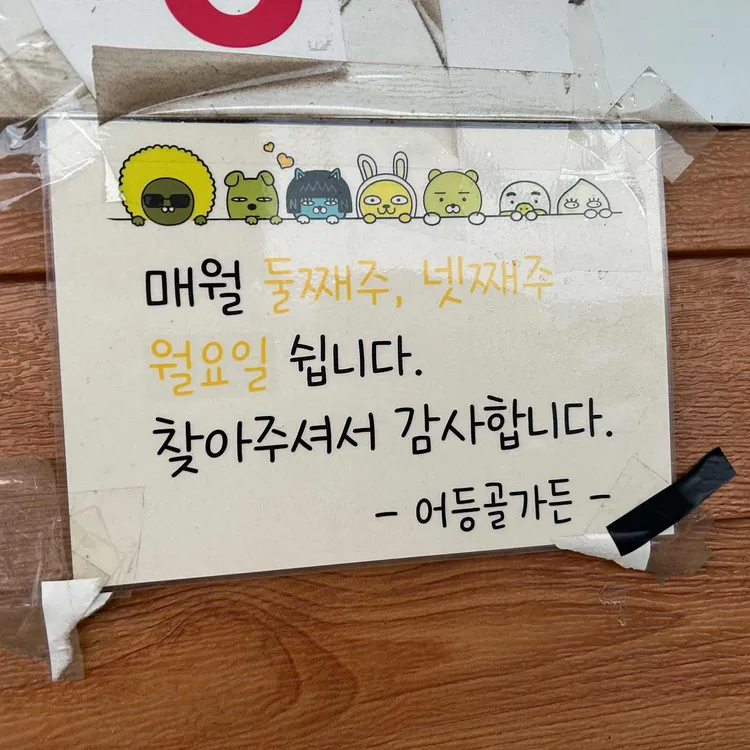 매월 둘째주, 넷째주
월요일 쉽니다.
찾아주셔서 감사합니다.
- 어등골가든 -